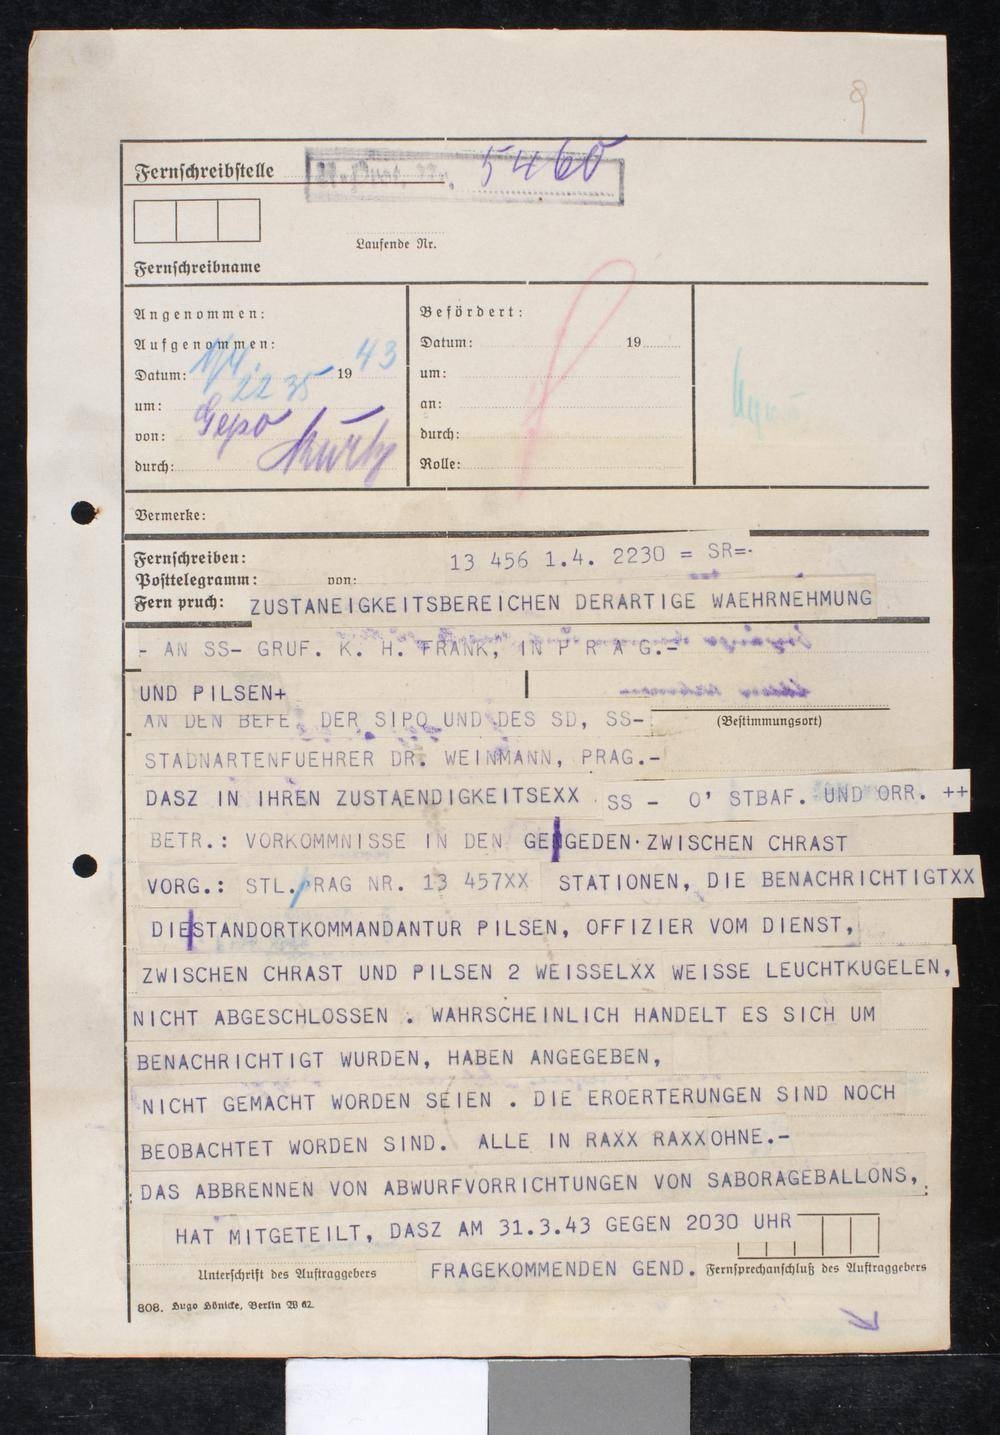 8
Fernschreibstelle
5460
Laufende Nr.
Fernschreibname
Angenommen:
Aufgenommen:
Datum: 1/4. 19 43
um: 22 35
von: Gepo
durch:
Befördert:
Datum: 19
um:
an:
durch:
Rolle:
Vermerke:
Fernschreiben:
Posttelegramm: von:
Fern pruch:
13 456 1.4. 2230 = SR=·
ZUSTANEIGKEITSBEREICHEN DERARTIGE WAEHRNEHMUNG
- AN SS- GRUF. K. H. FRANK, IN P R A G.-
UND PILSEN+
AN DEN BEFE. DER SIPO UND DES SD, SS-
(Bestimmungsort)
STADNARTENFUEHRER DR. WEINMANN, PRAG.-
DASZ IN IHREN ZUSTAENDIGKEITSEXX SS - O' STBAF. UND ORR. ++
BETR.: VORKOMMNISSE IN DEN GENGEDEN·ZWISCHEN CHRAST
VORG.: STL.PRAG NR. 13 457XX STATIONEN, DIE BENACHRICHTIGTXX
DIE STANDORTKOMMANDANTUR PILSEN, OFFIZIER VOM DIENST,
ZWISCHEN CHRAST UND PILSEN 2 WEISSELXX WEISSE LEUCHTKUGELEN,
NICHT ABGESCHLOSSEN . WAHRSCHEINLICH HANDELT ES SICH UM
BENACHRICHTIGT WURDEN, HABEN ANGEGEBEN,
NICHT GEMACHT WORDEN SEIEN . DIE EROERTERUNGEN SIND NOCH
BEOBACHTET WORDEN SIND. ALLE IN RAXX RAXXOHNE.-
DAS ABBRENNEN VON ABWURFVORRICHTUNGEN VON SABORAGEBALLONS,
HAT MITGETEILT, DASZ AM 31.3.43 GEGEN 2030 UHR
FRAGEKOMMENDEN GEND.
Unterschrift des Auftraggebers
Fernsprechanschluß des Auftraggebers
808. Hugo Hönicke, Berlin W 62.